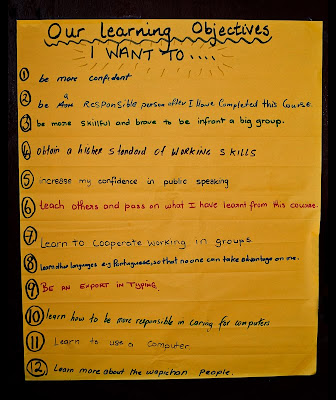 Our Learning Objectives
I WANT TO....
1 be more confident
2 be a more Responsible person after I have Completed this Course.
3 be more skillful and brave to be infront a big group.
4 obtain a higher standard of WORKING SKILLS
5 increase my confidence in public speaking
6 teach others and pass on what I have learnt from this course.
7 Learn to cooperate working in groups.
8 Learn other languages e.g Portuguese, so that no one can take advantage on me.
9 BE AN EXPORT IN TYPING.
10 learn how to be more responsible in caring for computers
11 Learn to use a Computer
12 Learn more about the wapichan people.